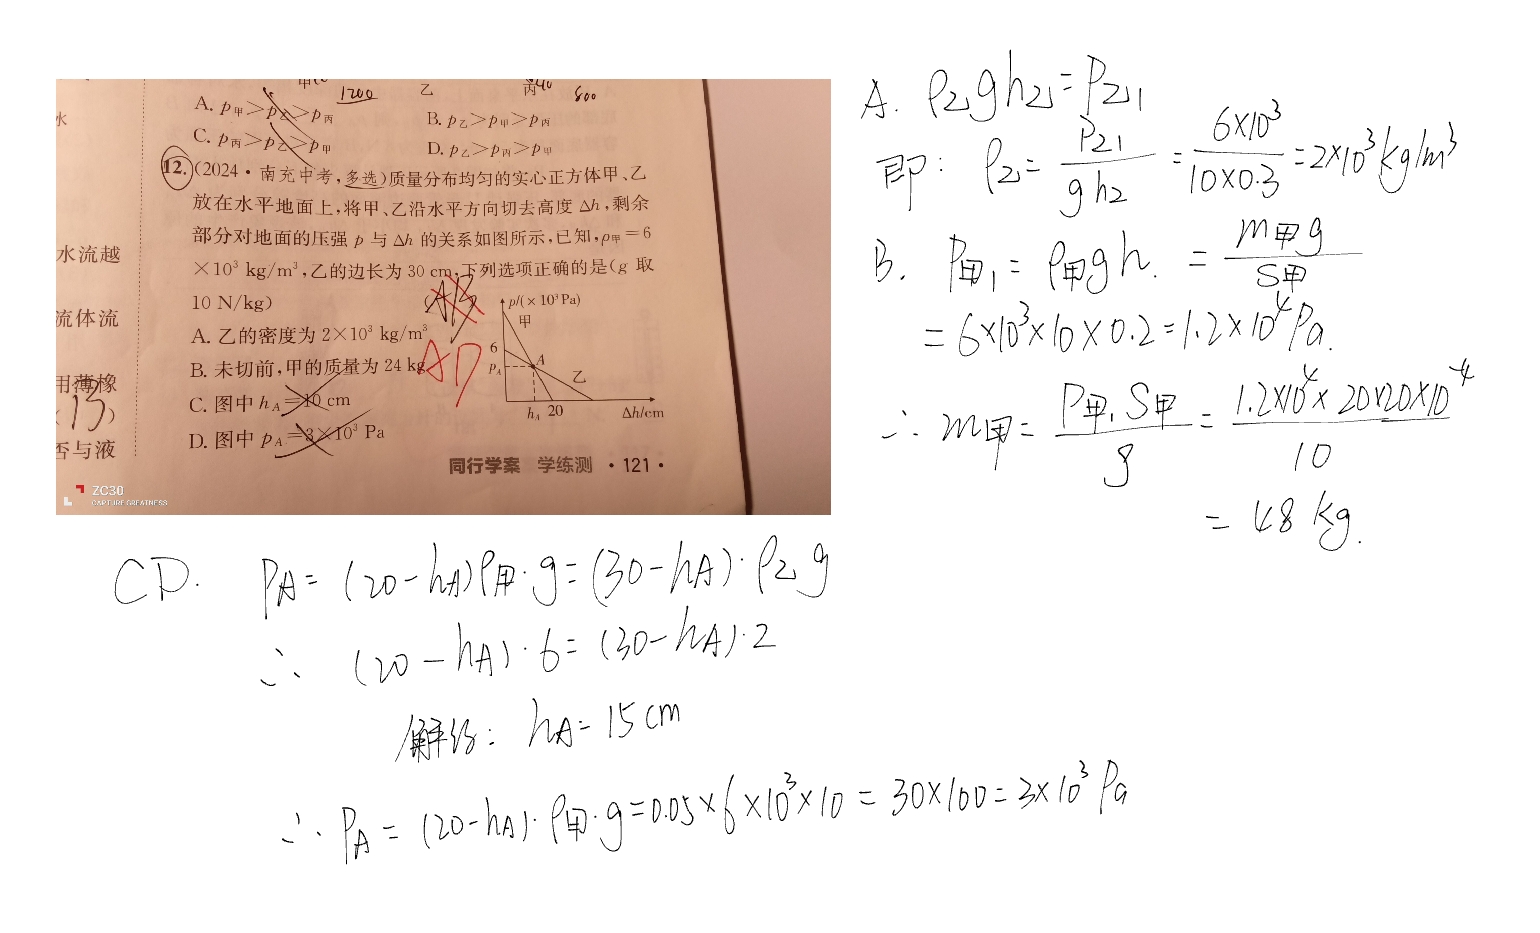 甲 1200 乙 丙 800
A. p甲>p乙>p丙 B. p乙>p甲>p丙
C. p丙>p乙>p甲 D. p乙>p丙>p甲
12.(2024·南充中考,多选)质量分布均匀的实心正方体甲、乙
放在水平地面上,将甲、乙沿水平方向切去高度 Δh,剩余
部分对地面的压强 p 与 Δh 的关系如图所示,已知,ρ甲=6
×10³ kg/m³,乙的边长为 30 cm,下列选项正确的是(g 取
10 N/kg)
(AB)
A. 乙的密度为 2×10³ kg/m³
B. 未切前,甲的质量为 24 kg
AD
C. 图中 hA=10 cm
D. 图中 pA=3×10³ Pa
p/(×10³Pa)
甲
6
pA
A
乙
hA 20 Δh/cm
同行学案 学练测 ·121·
水
水流越
流体流
用薄橡
(13)
否与液
ZC30
CAPTURE GREATNESS
A. ρ乙gh乙=P乙1
即: ρ乙=P乙1/gh乙=6×10³/10×0.3=2×10³kg/m³
B. P甲1=ρ甲gh.=m甲g/S甲
=6×10³×10×0.2=1.2×10⁴Pa.
∴m甲=P甲1S甲/g=1.2×10⁴×20×20×10⁻⁴/10
=48kg.
CD. PA=(20-hA)ρ甲·g=(30-hA)·ρ乙g
∴ (20-hA)·6=(30-hA)·2
解得: hA=15cm
∴PA=(20-hA)·ρ甲·g=0.05×6×10³×10=30×100=3×10³Pa